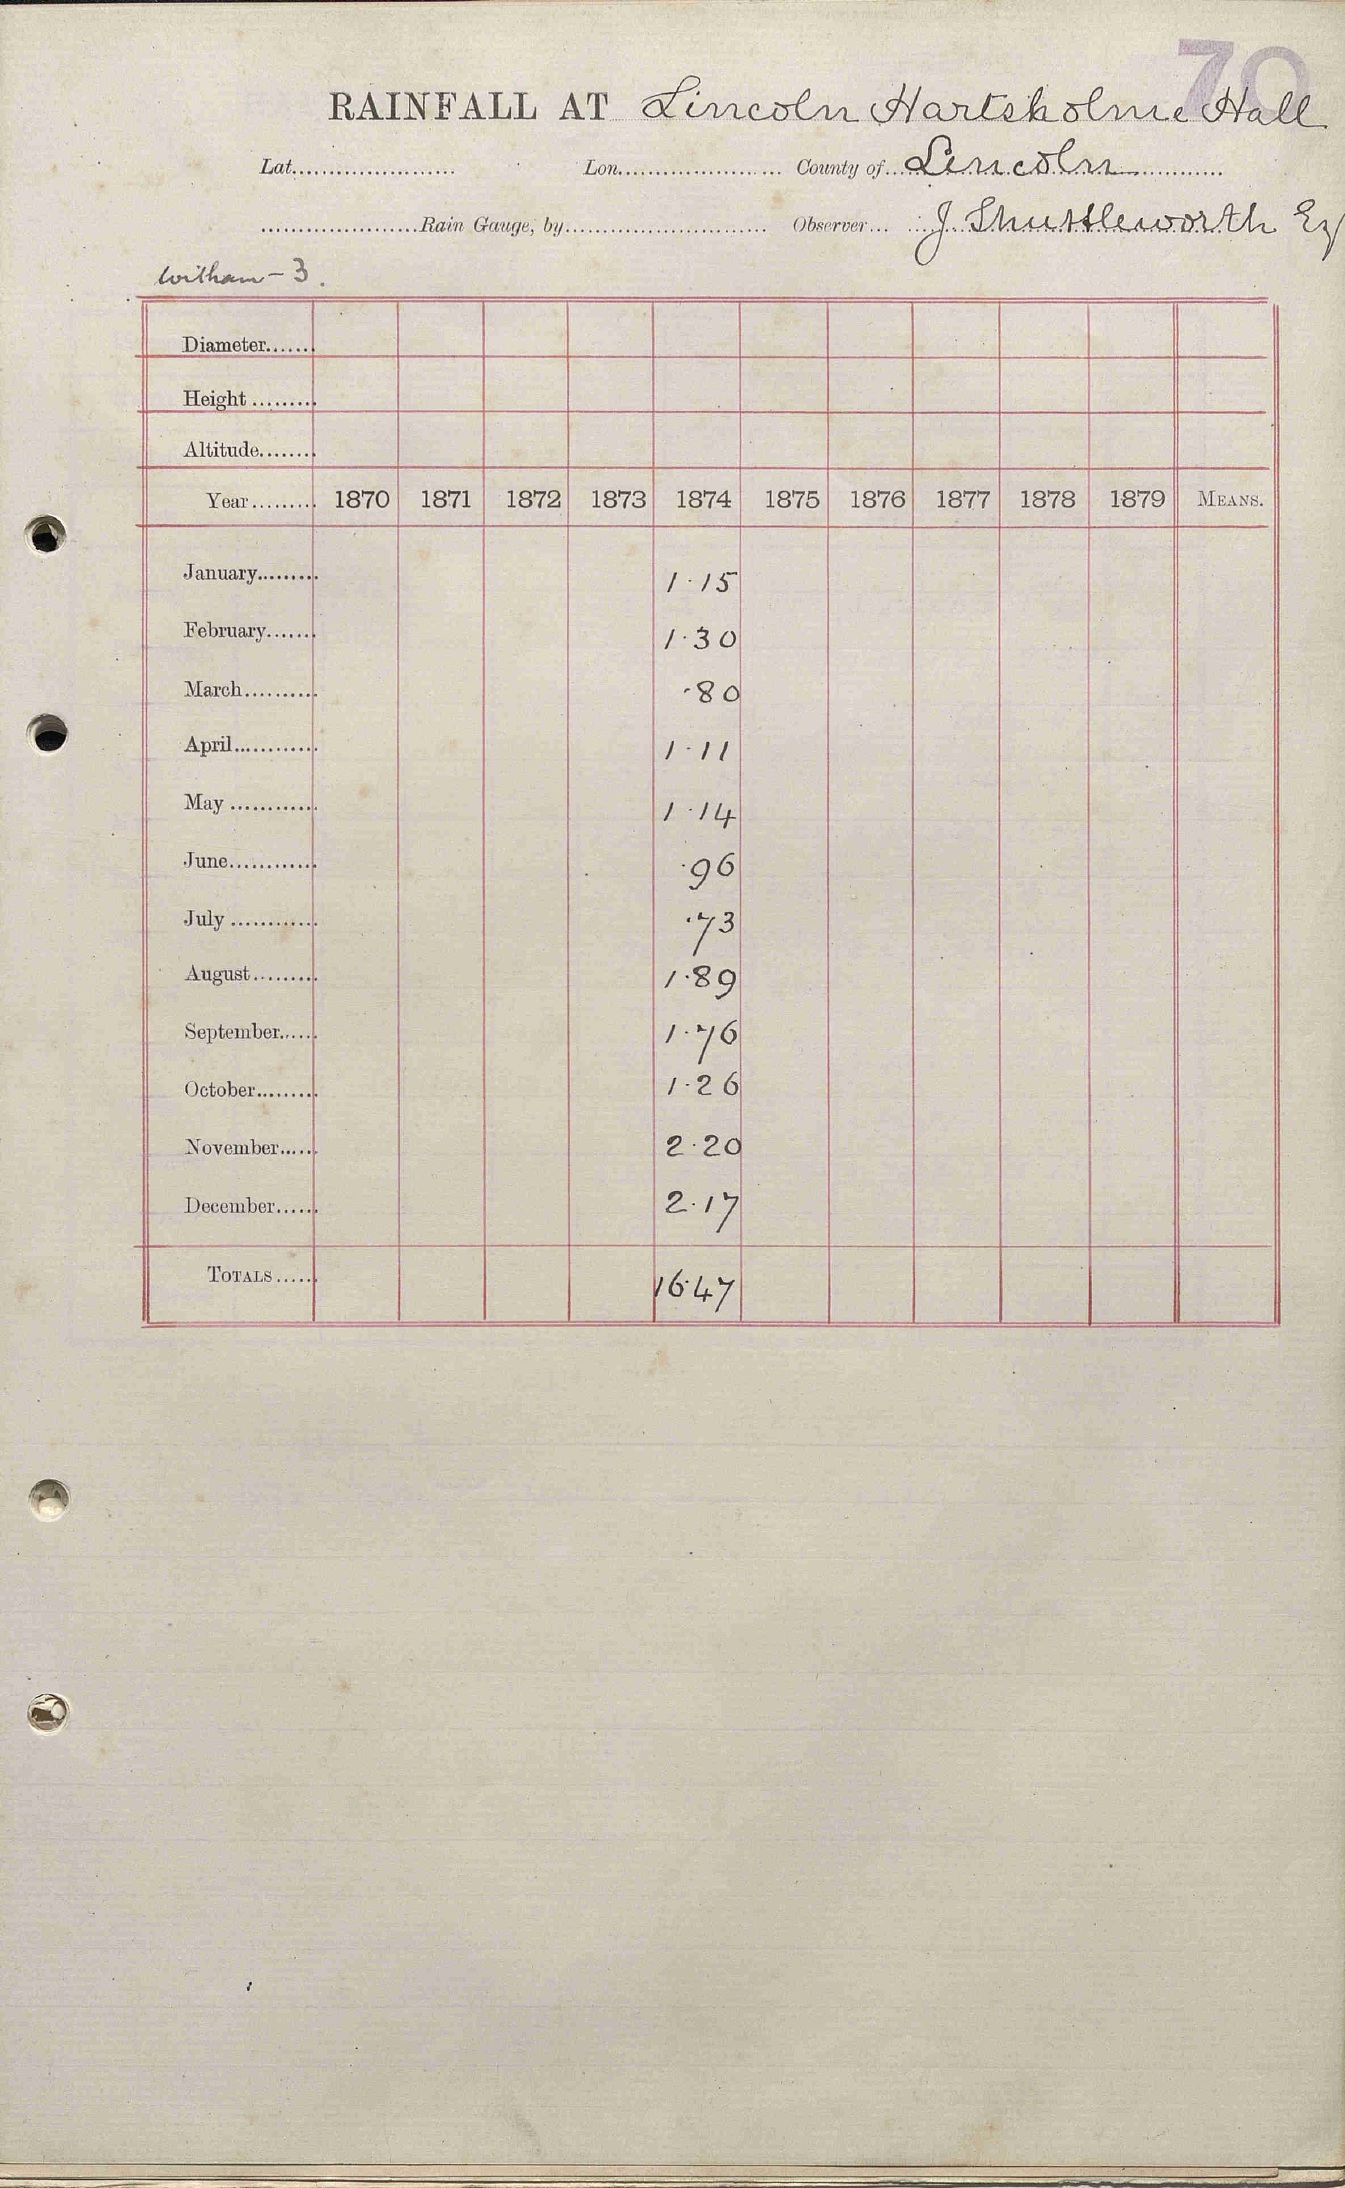 70
RAINFALL AT Lincoln Hartsholme Hall
Lat...................... Lon...................... County of Lincoln
......................Rain Gauge, by........................... Observer... J Shuttleworth Esq
Witham - 3.
Diameter......
Height.........
Altitude........
Year......... 1870 1871 1872 1873 1874 1875 1876 1877 1878 1879 MEANS.
January......... 1.15
February....... 1.30
March.......... .80
April............ 1.11
May ............ 1.14
June............ .96
July ............ .73
August......... 1.89
September...... 1.76
October......... 1.26
November...... 2.20
December...... 2.17
TOTALS...... 16.47